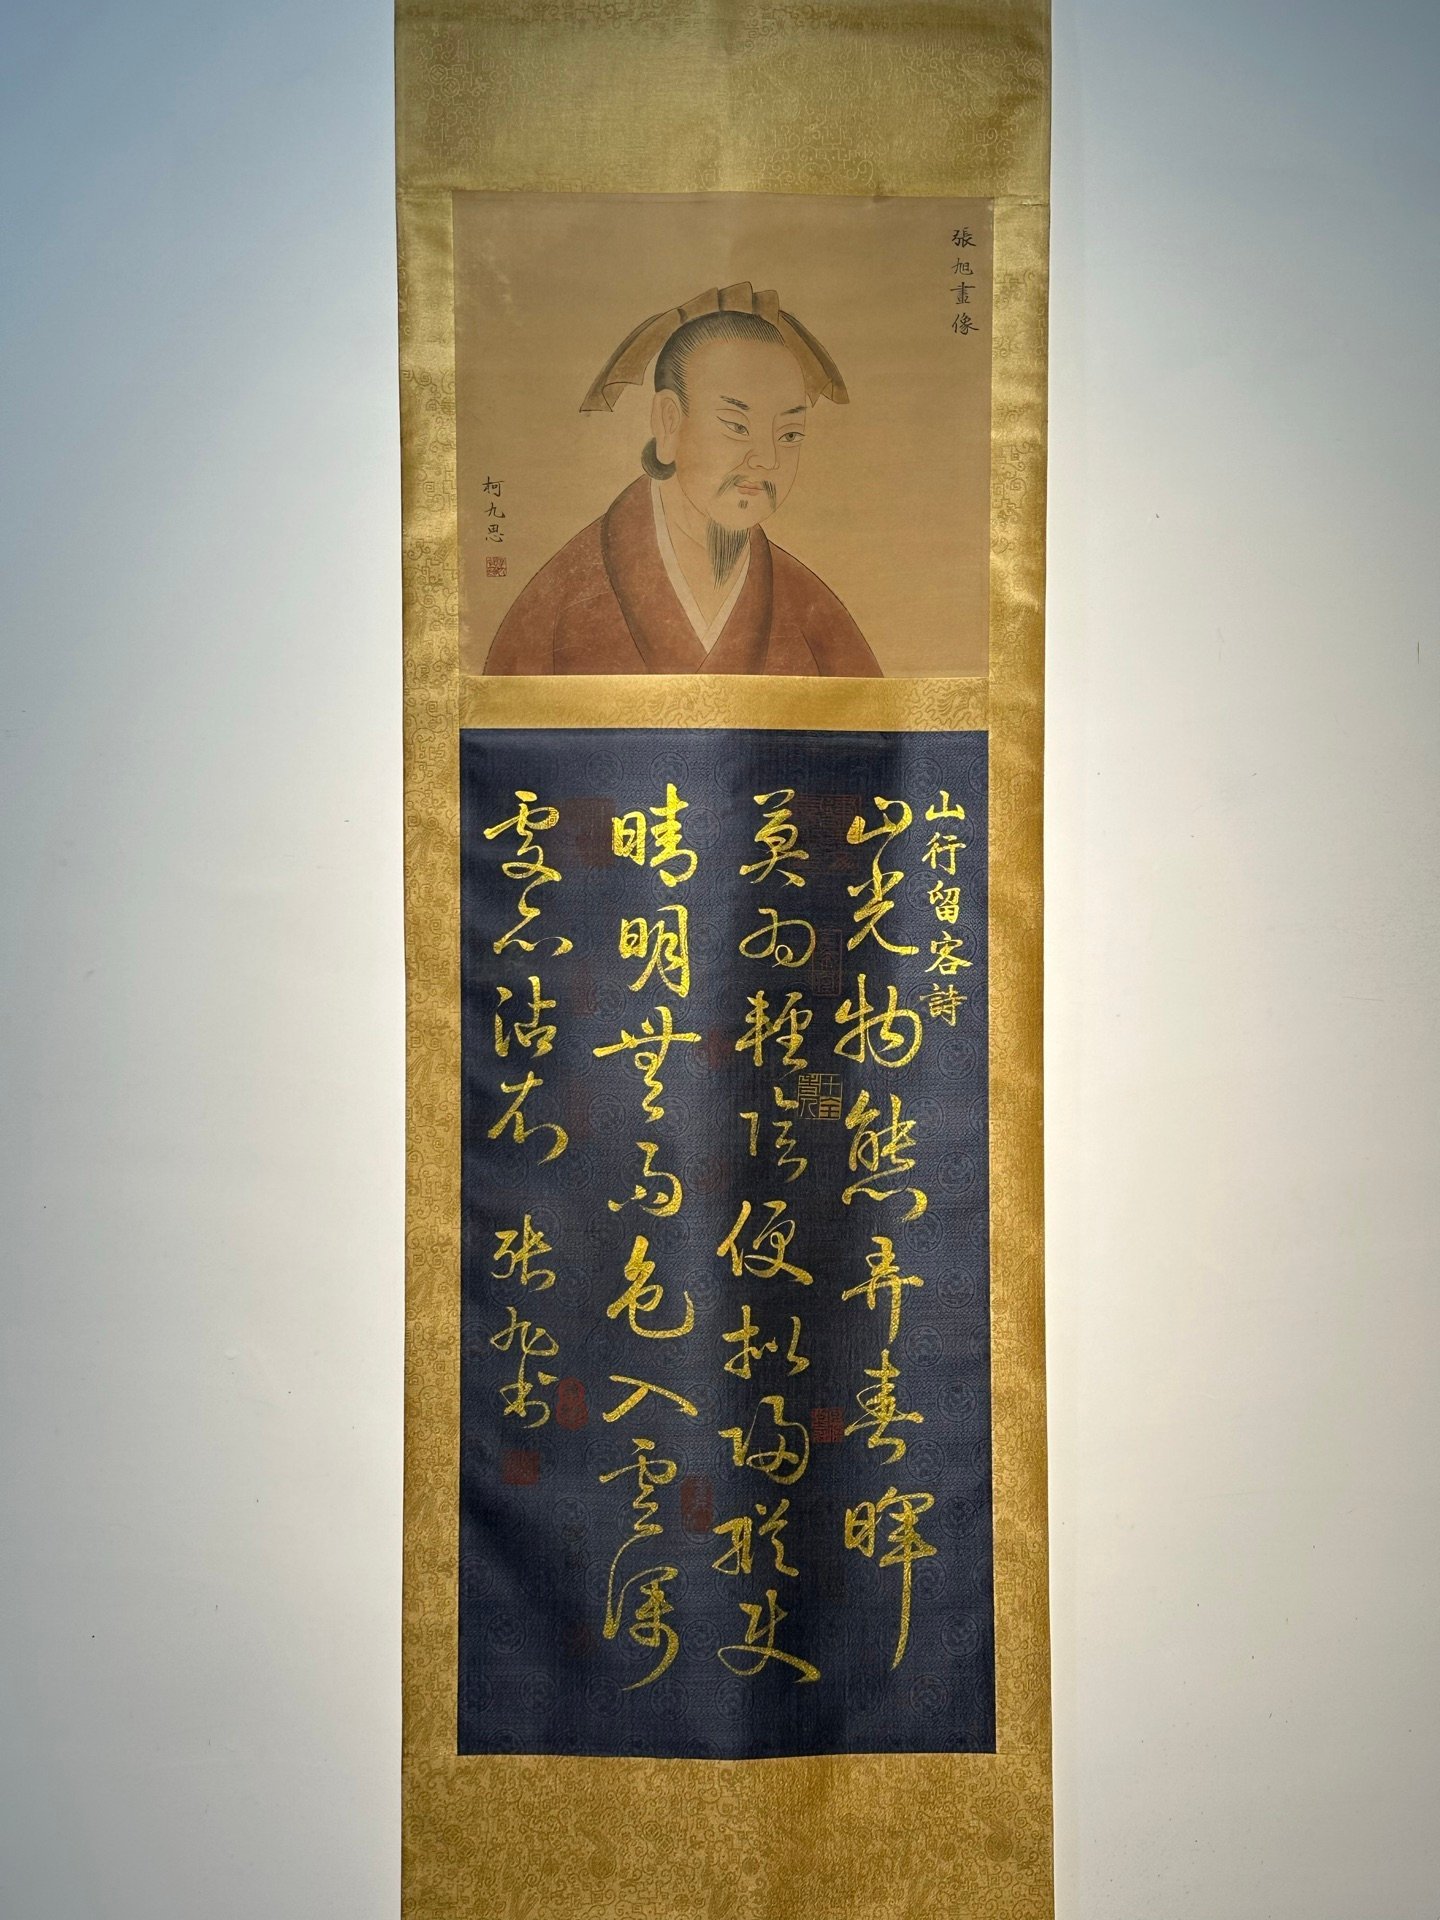 張旭畫像
柯九思
山行留客詩
山光物態弄春暉
莫為輕陰便擬歸縱使
晴明無雨色入雲深
處亦沾衣
張旭書
十全老人